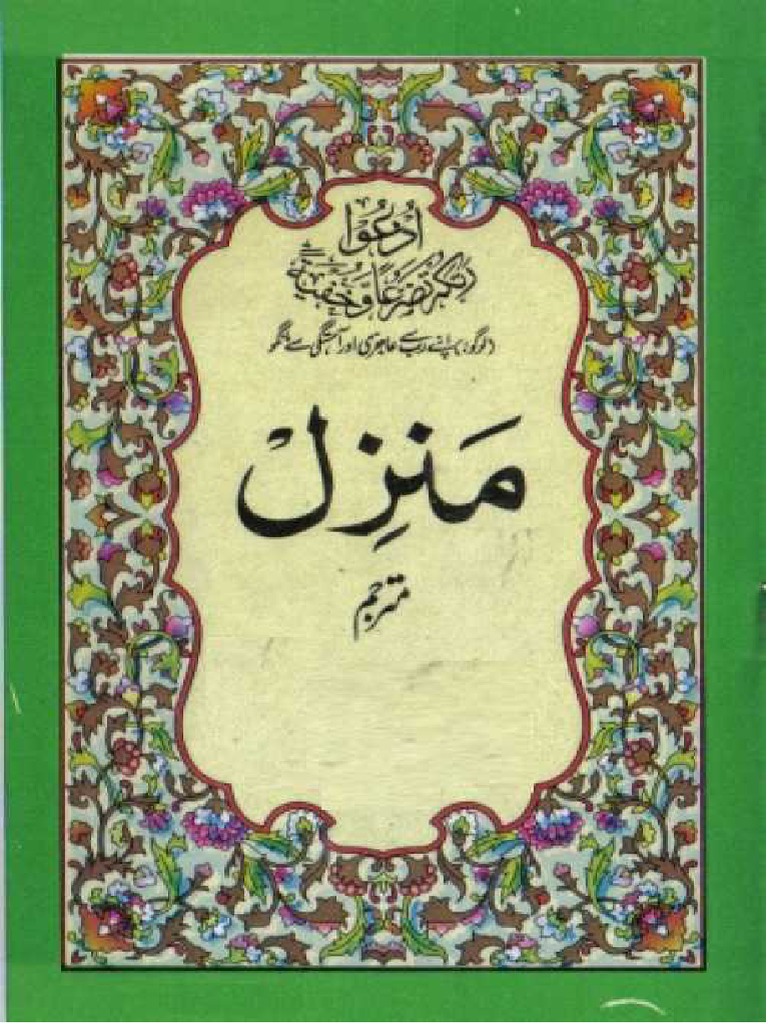 اُدْعُوْا
رَبَّكُمْ تَضَرُّعًا وَّخُفْيَةً
(لوگو!) اپنے رب سے عاجزی اور آہستگی سے مانگو
مَنزِل
مترجم